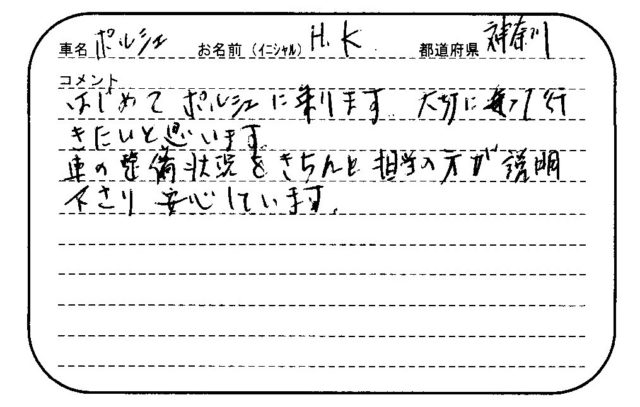 車名 ポルシェ お名前（イニシャル） H.K. 都道府県 神奈川
コメント
はじめて ポルシェに乗ります. 大切に乗って行
きたいと思います.
車の整備状況をきちんと担当の方が説明
下さり 安心しています.